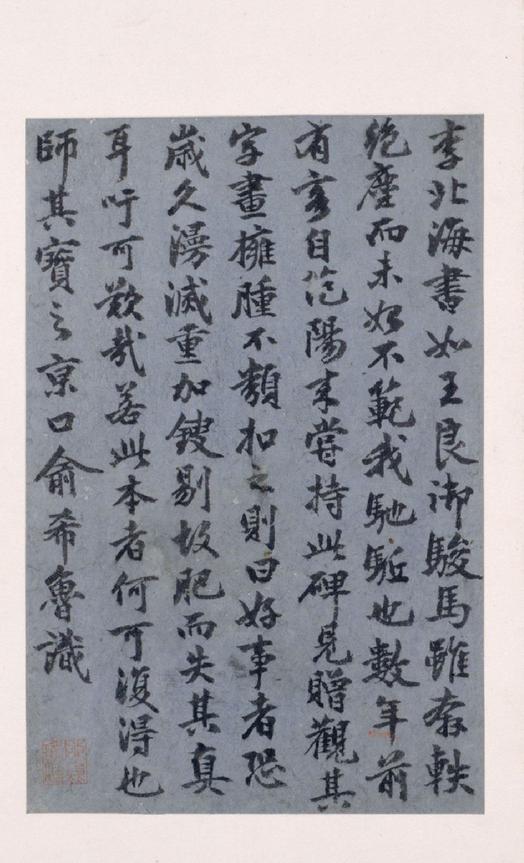 李北海書如王良御駿馬雖奔軼
絶塵而未始不範我馳驅也數年前
有客自范陽來嘗持此碑見贈觀其
字畫擁腫不類扣之則曰好事者恐
歲久漫滅重加鋟剔故肥而失其真
耳吁可歎哉若此本者何可復得也
師其寶之京口俞希魯識